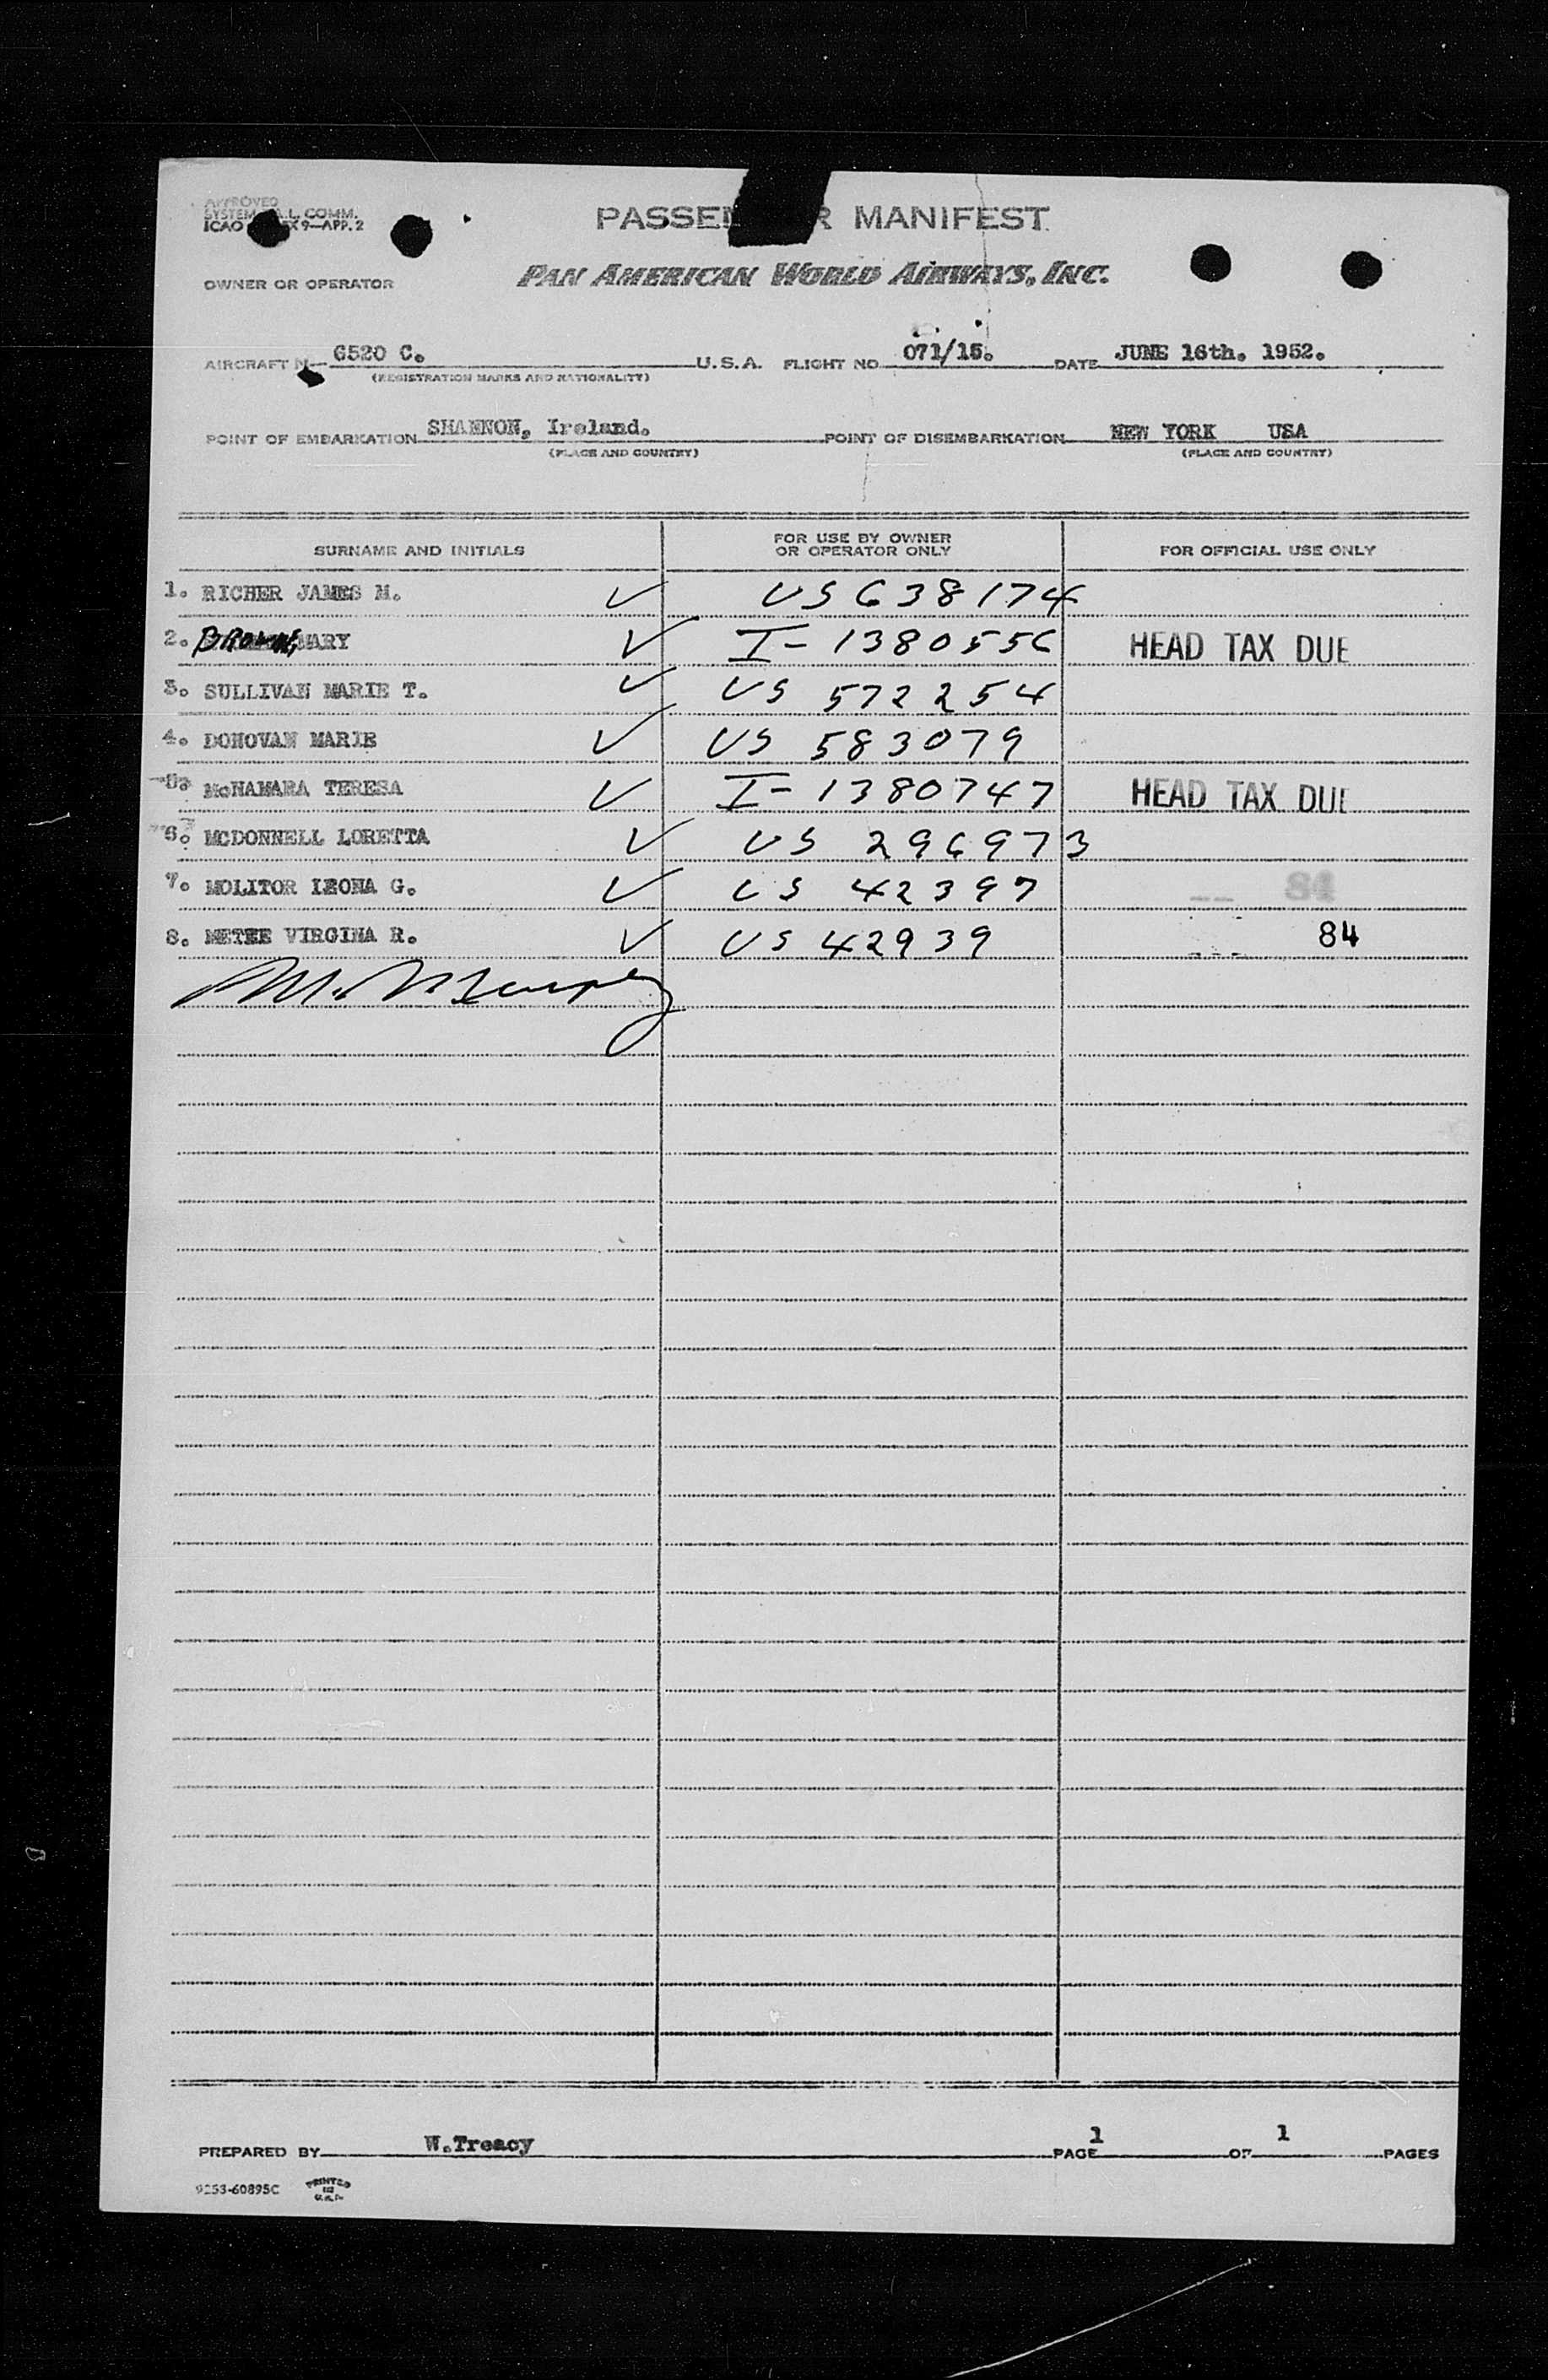 APPROVED
SYSTEM A.L. COMM.
ICAO X 9—APP. 2
PASSEN R MANIFEST
OWNER OR OPERATOR PAN AMERICAN WORLD AIRWAYS, INC.
AIRCRAFT N— 6520 C. U.S.A. FLIGHT NO 071/15. DATE JUNE 16th. 1952.
(REGISTRATION MARKS AND NATIONALITY)
POINT OF EMBARKATION SHANNON, Ireland. POINT OF DISEMBARKATION NEW YORK USA
(PLACE AND COUNTRY) (PLACE AND COUNTRY)
SURNAME AND INITIALS FOR USE BY OWNER OR OPERATOR ONLY FOR OFFICIAL USE ONLY
1. RICHER JAMES M. ✓ US 638174
2. BROWN, MARY ✓ I-1380556 HEAD TAX DUE
3. SULLIVAN MARIE T. ✓ US 572254
4. DONOVAN MARIE ✓ US 583079
5. McNAMARA TERESA ✓ I-1380747 HEAD TAX DUE
6. MCDONNELL LORETTA ✓ US 296973
7. MOLITOR LEONA G. ✓ US 42397 84
8. METEE VIRGINA R. ✓ US 42939 84
M. Murphy
PREPARED BY W.Treacy PAGE 1 OF 1 PAGES
9253-60895C PRINTED IN U.S.A.